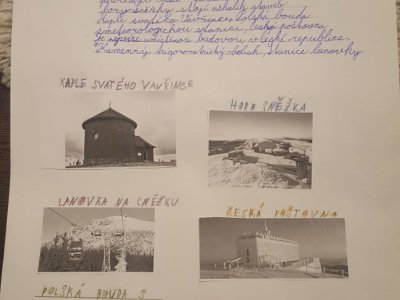 hory Sněžky. Stojí několik staveb
Kaple svatého Vavřince, Polská bouda
s meteorologickou stanicí, Česká poštovna
je nejvýše umístěnou budovou v české republice.
Kamenný trigonometrický obelisk, stanice lanovky
KAPLE SVATÉHO VAVŘINCE
HORA SNĚŽKA
LANOVKA NA SNĚŽKU
ČESKÁ POŠTOVNA
POLSKÁ BOUDA S